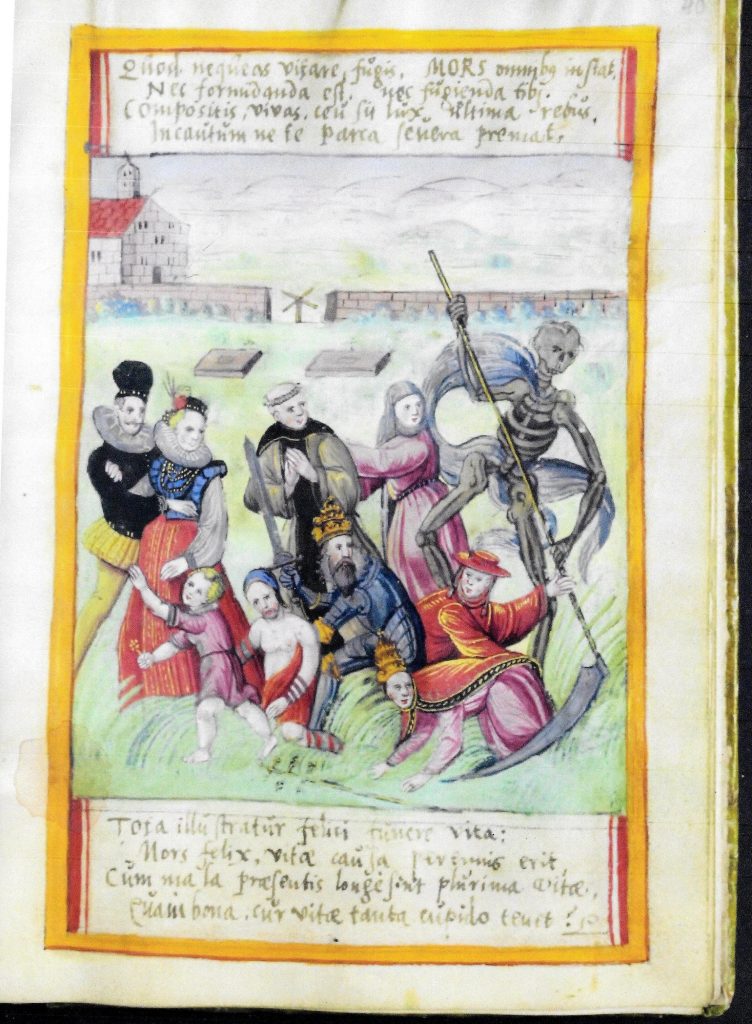 Quod nequeas vitare, fugis, MORS omnibq instat,
Nec formidanda est, nec fugienda tibi.
Compositis, vivas, ceu sit lux ultima rebus,
Incautum ne te parca severa premat.
Tota illustratur felici funere vita:
Mors felix, vitæ causa perennis erit,
Cum mala præsentis longe sint plurima vitæ,
Quam bona, cur vitæ tanta cupido tenet?